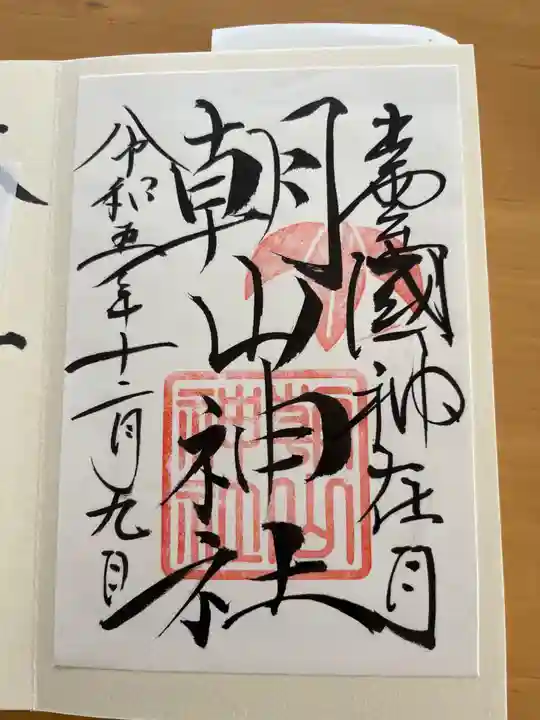 出雲國神在月
朝山神社
朝山神社
令和五年十二月九日